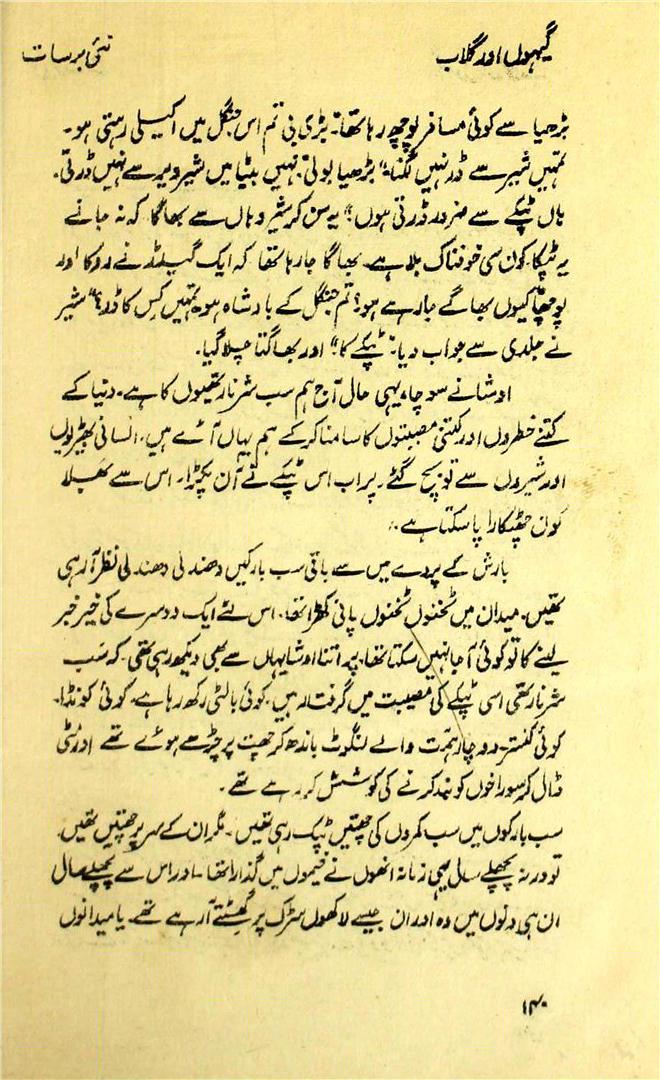 گیہوں اور گلاب
نئی برسات
بڑھیا سے کوئی مسافر پوچھ رہا تھا "بڑی بی تم اس جنگل میں اکیلی رہتی ہو۔
تمہیں شیر سے ڈر نہیں لگتا" بڑھیا بولی "نہیں بیٹا میں شیر ویر سے نہیں ڈرتی۔
ہاں ٹپکے سے ضرور ڈرتی ہوں" یہ سن کر شیر وہاں سے بھاگا کہ نہ جانے
یہ ٹپکا کون سی خوفناک بلا ہے۔ بھاگا جا رہا تھا کہ ایک گیدڑ نے روکا اور
پوچھا "کیوں بھاگے جا رہے ہو؟ تم جنگل کے بادشاہ ہو۔ تمہیں کس کا ڈر؟" شیر
نے جلدی سے جواب دیا۔ "ٹپکے کا" اور بھاگتا چلا گیا۔
اوشا نے سوچا، یہی حال آج ہم سب شرنارتھیوں کا ہے۔ دنیا کے
کتنے خطروں اور کتنی مصیبتوں کا سامنا کر کے ہم یہاں آئے ہیں۔ انسانی بھیڑیوں
اور شیروں سے تو بچ گئے۔ پر اب اس ٹپکے نے آن پکڑا۔ اس سے بھلا
کون چھٹکارا پا سکتا ہے۔
بارش کے پردے میں سے باقی سب بارکیں دھندلی دھندلی نظر آ رہی
تھیں۔ میدان میں ٹخنوں ٹخنوں پانی کھڑا تھا۔ اس لئے ایک دوسرے کی خیر خبر
لینے کا تو کوئی آ جا نہیں سکتا تھا، پر اتنا اوشا یہاں سے بھی دیکھ رہی تھی۔ کہ سب
شرنارتھی اسی ٹپکے کی مصیبت میں گرفتار ہیں۔ کوئی بالٹی رکھ رہا ہے۔ کوئی کونڈا۔
کوئی کنستر۔ دو چار ہمت والے لنگوٹ باندھ کر چھت پر چڑھے ہوئے تھے اور مٹی
ڈال کر سوراخوں کو بند کرنے کی کوشش کر رہے تھے۔
سب بارکوں میں سب کمروں کی چھتیں ٹپک رہی تھیں۔ مگر ان کے سر پر چھتیں تھیں۔
تو ورنہ پچھلے سال یہی زمانہ انھوں نے خیموں میں گذارا تھا۔ اور اس سے پچھلے سال
ان ہی دنوں میں وہ اور ان جیسے لاکھوں سڑک پر گھسٹتے آ رہے تھے۔ یا میدانوں
۱۴۰